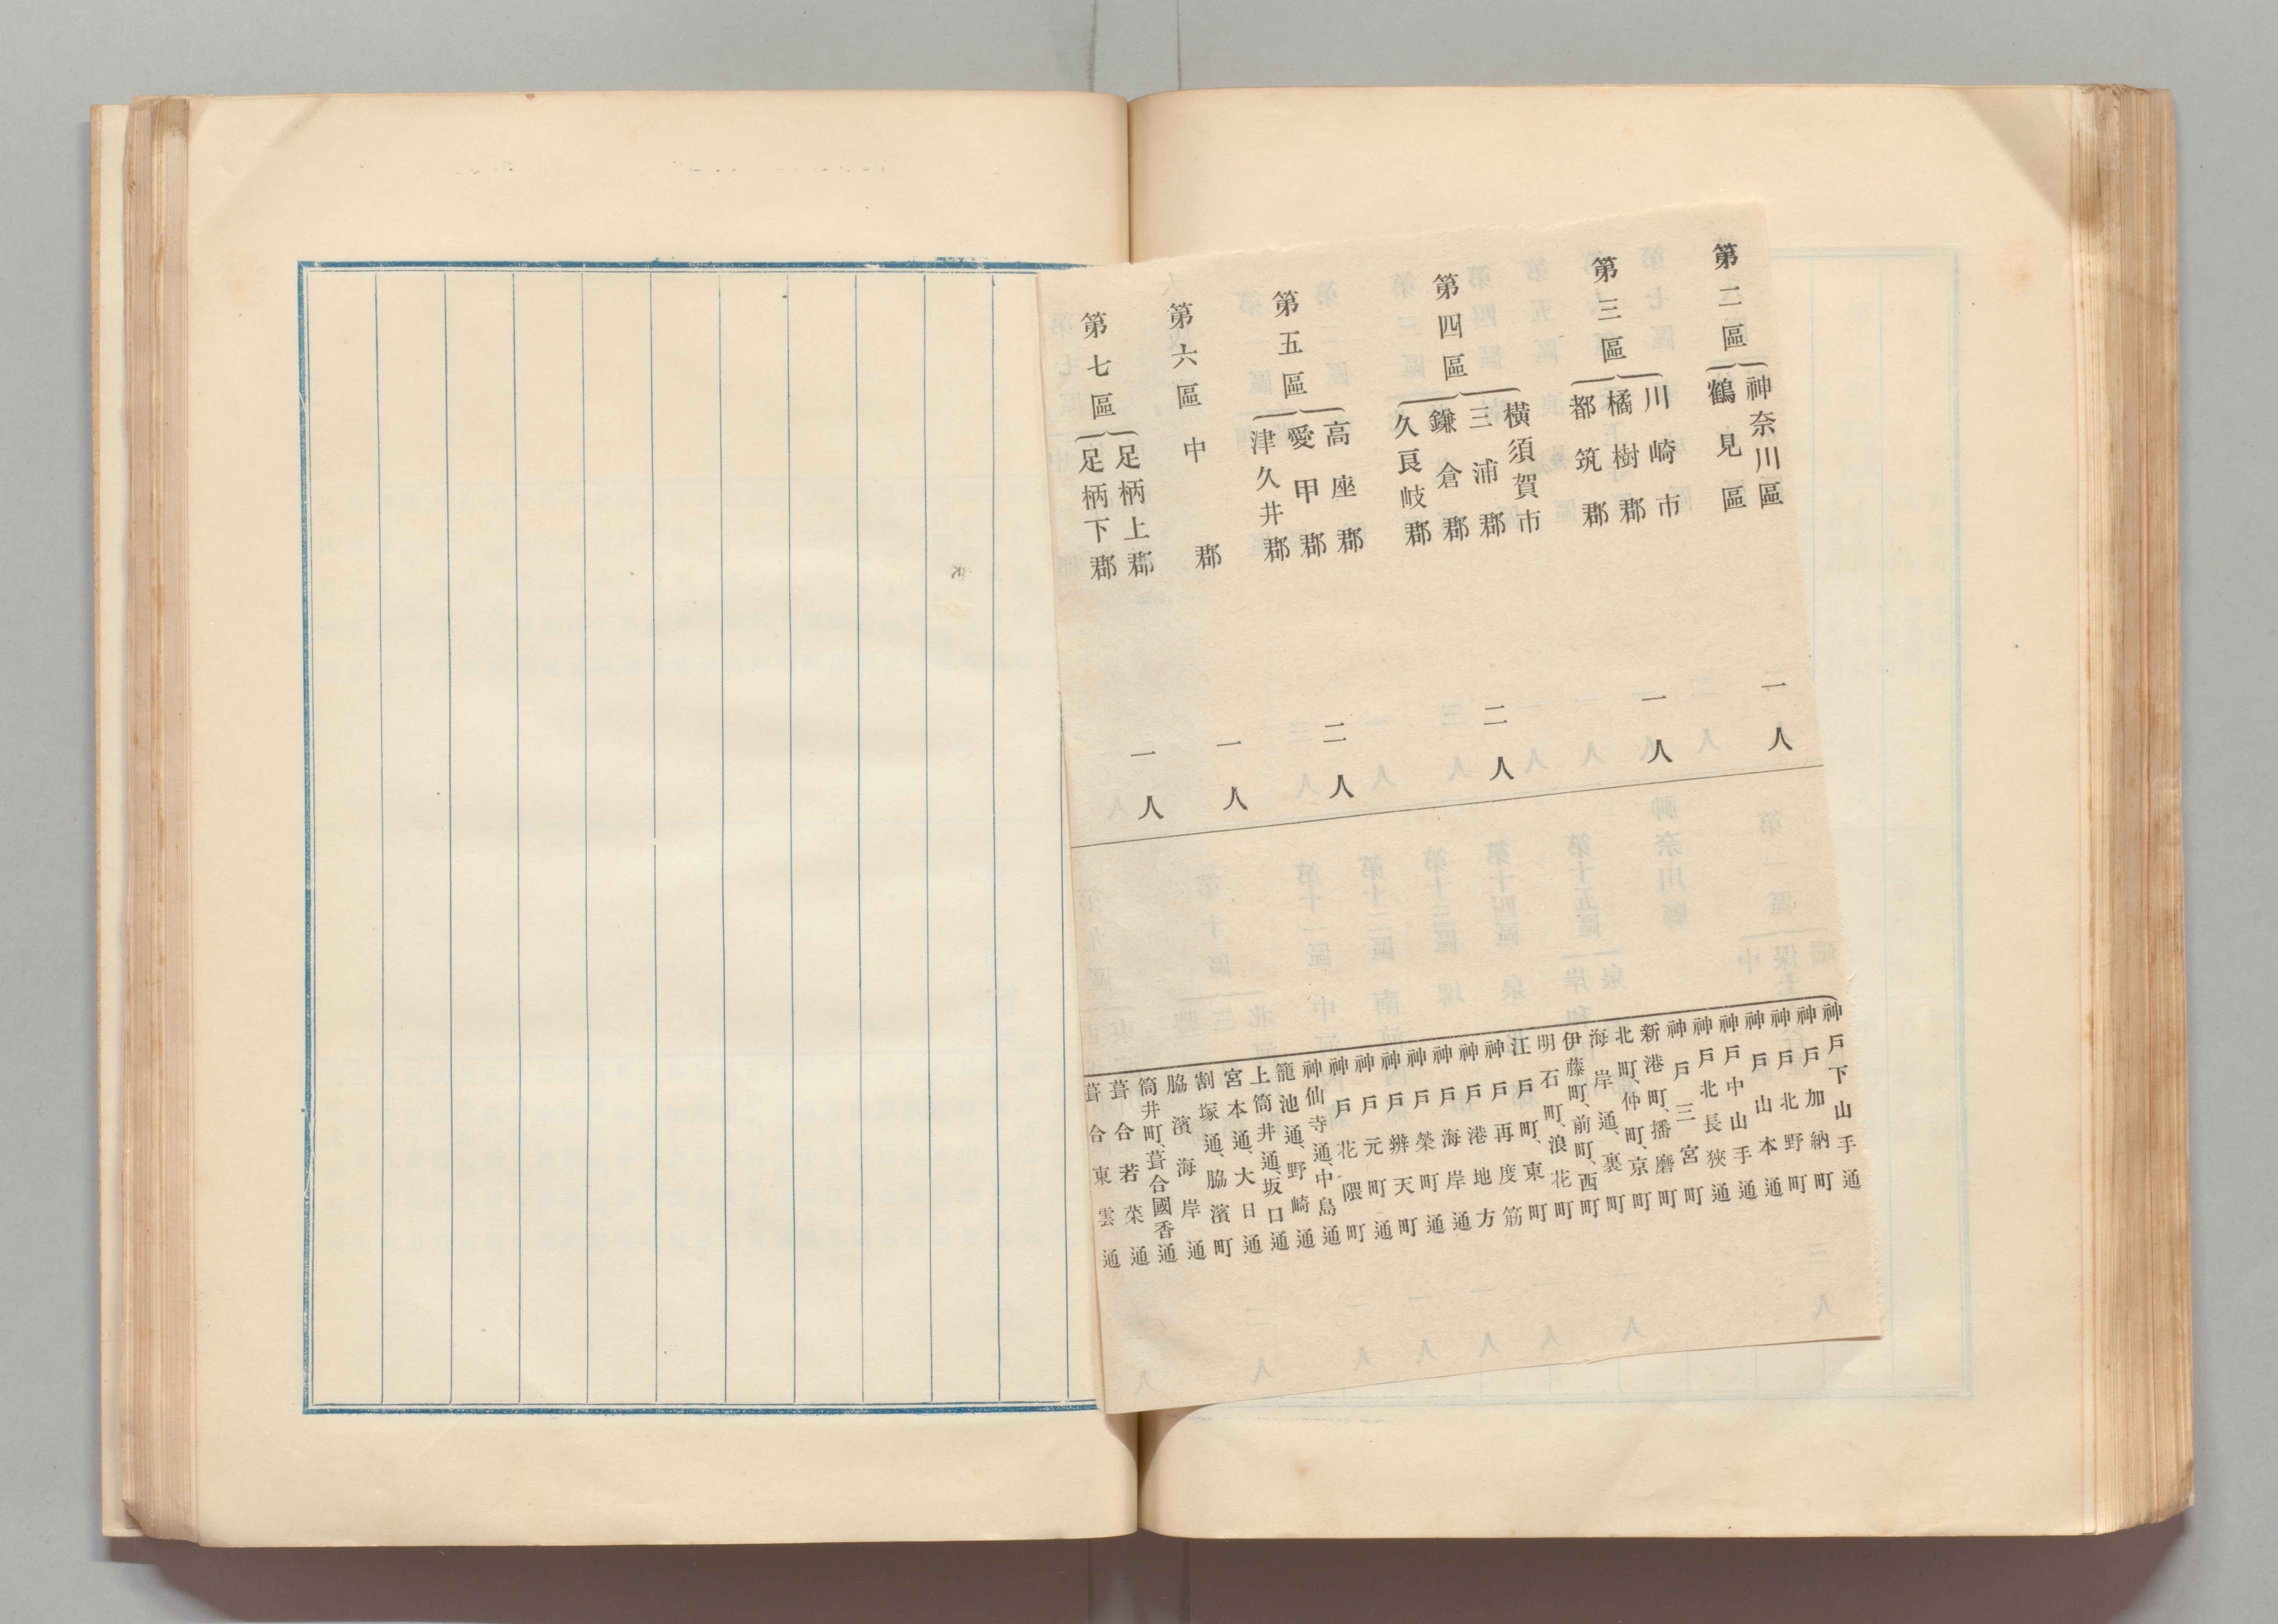 第二區
神奈川區
鶴見區
一人
第三區
川崎市
橘樹郡
都筑郡
一人
第四區
橫須賀市
三浦郡
鎌倉郡
久良岐郡
二人
第五區
高座郡
愛甲郡
津久井郡
二人
第六區
中郡
一人
第七區
足柄上郡
足柄下郡
一人
神戶下山手通
神戶加納町
神戶北野町
神戶山本通
神戶中山手通
神戶北長狹通
神戶三宮町
新港町、播磨町
北町、仲町、京町
海岸通、裏町
伊藤町、前町、西町
明石町、浪花町
江戶町、東町
神戶再度筋
神戶港地方
神戶海岸通
神戶榮町通
神戶辨天町
神戶元町通
神戶花隈町
神仙寺通、中島通
籠池通、野崎通
上筒井通、坂口通
宮本通、大日通
割塚通、脇濱町
脇濱海岸通
筒井町、葺合國香通
葺合若菜通
葺合東雲通